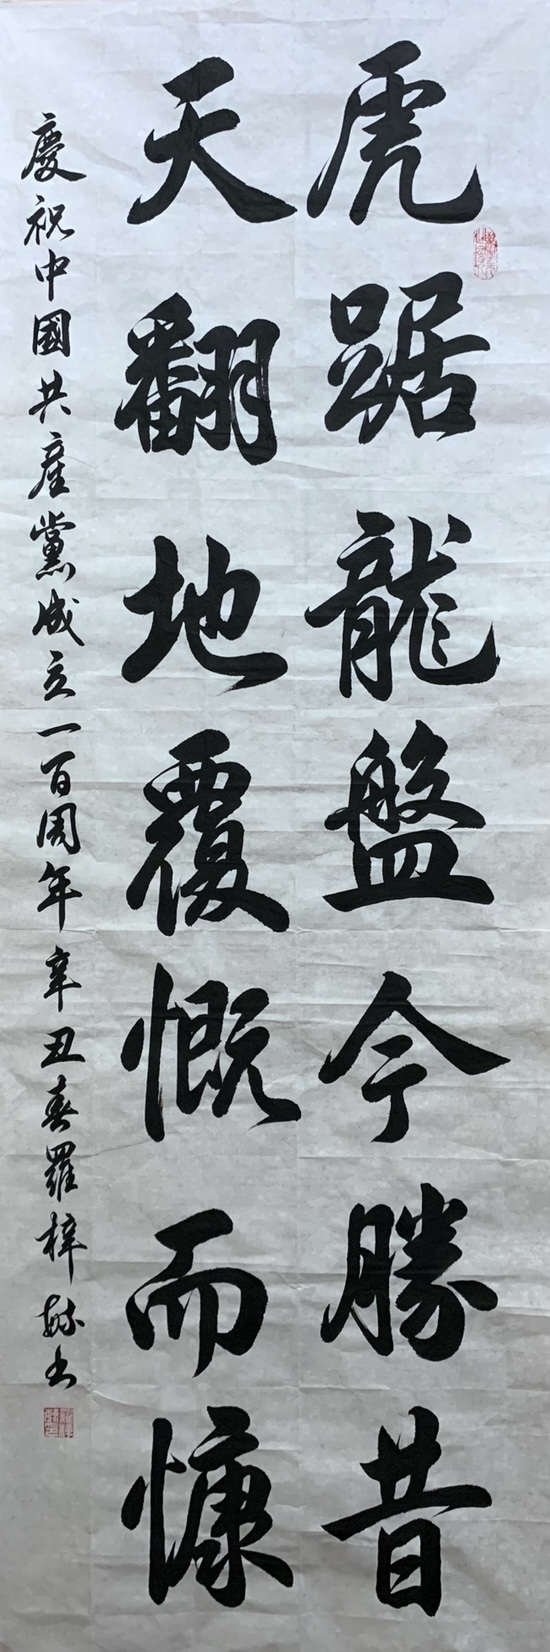 虎踞龍盤今勝昔
天翻地覆慨而慷
慶祝中國共產黨成立一百周年辛丑春羅梓毓书